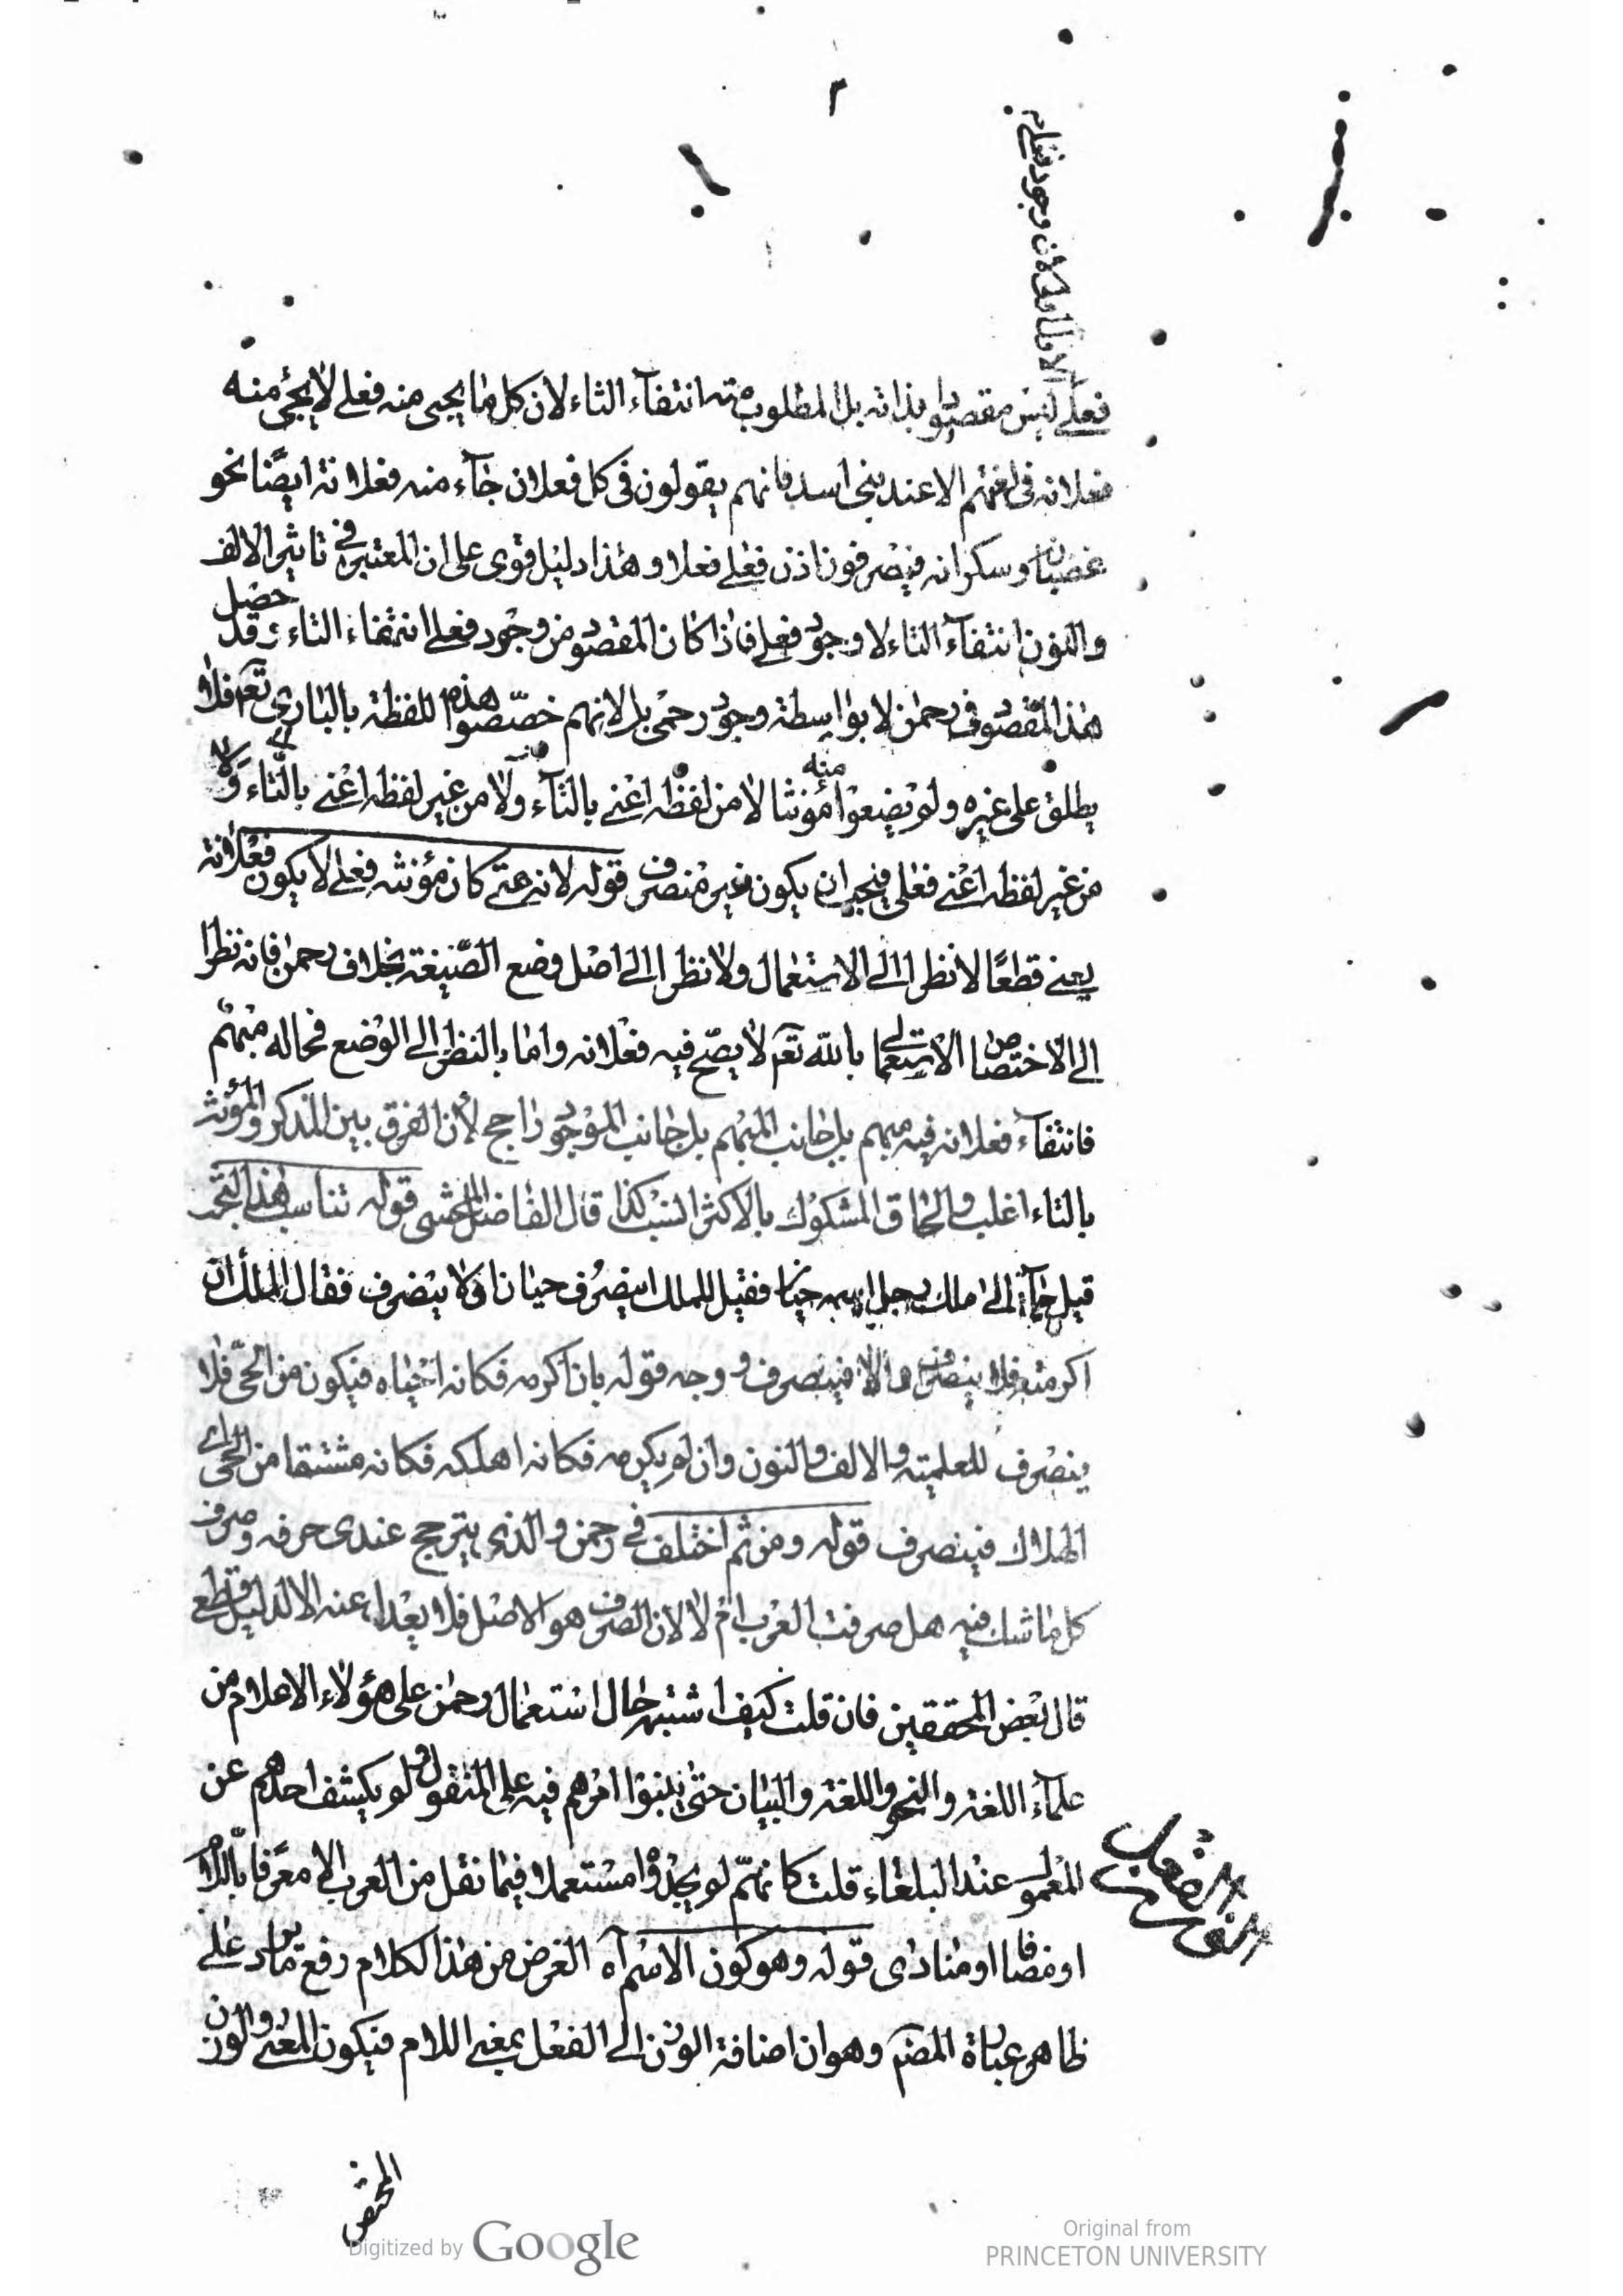 ٢
لان وجود فعلى
فعلى ليس مقصودا بذاته بل المطلوب منه انتفآء التاء لان كل ما يجيى منه فعلى لا يجئ منه
فعلانه فى لغتهم الا عند بنى اسد فانهم يقولون فى كل فعلان جآء منه فعلى فعلانة ايضًا نحو
غضبانه وسكرانه فيصرفون اذن فعلان فعلى وهذا دليل قوى على ان المعتبر فى تاثير الالف
والنون انتفآء التاء لا وجود فعلى فاذا كان المقصود من وجود فعلى انتفاء التاء وقد حصل
هذا المقصود فى رحمٰن لا بواسطة وجود رحمى بل لانهم خصّصوا هذه اللفظة بالبارى تعم فلا
يطلق على غيره ولم يضعوا منه مؤنثا لا من لفظه اعنى بالتآء ولا من غير لفظه اعنى بالتاء ولا
من غير لفظه اعنى فعلى فيجب ان يكون غير منصرف قوله لانه متى كان مؤنثه فعلى لا يكون فعلانة
يعنى قطعًا لا نظرا الى الاستعمال ولا نظرا الى اصل وضع الصّيغة بخلاف رحمن فانه نظرا
الى الاختصاص الاستعمالى بالله تعم لا يصح فيه فعلانه واما بالنظر الى الوضع فحاله مبهم
فانتفآء فعلانه فيه مبهم بل جانب المبهم بل جانب الموجود راجح لأن الفرق بين المذكر والمؤنث
بالتاء اغلب والحاق المشكوك بالاكثر انسب كذا قال الفاضل المحشى قوله تناسب هذا التجمد
قيل جآء الى ملك رجل اسمه حيان فقيل للملك اينصرف حيان او لا ينصرف فقال الملك ان
اكرمته فلا ينصرف والا فينصرف ووجه قوله بان اكرمه فكانه احياه فيكون من الحىّ فلا
ينصرف للعلمية والالف والنون وان لم يكرمه فكانه اهلكه فكانه مشتقا من الحين اى
الهلاك فينصرف قوله ومن ثم اختلف فى رحمن والذى يترجح عندى صرفه وصرف
كل ما شك فيه هل صرفت العرب ام لا لان الصرف هو الاصل فلا يعدل عنه الا لدليل قاطع
قال بعض المحققين فان قلت كيف اشتبه حال استعمال رحمن على هؤلاء الاعلام من
علمآء اللغة والنحو واللغة والبيان حتى بنوا امرهم فيه على المنقول ولم يكشف احدهم عن
المعمول عند البلغاء قلت كانهّم لم يجدوه مستعملا فيما نقل من العرب الا معرفا باللام
او مضافا او منادى قوله وهو كون الاسم آه الغرض من هذا الكلام رفع ما يراد على
ظاهر عبارة المصنّ وهو ان اضافة الوزن الى الفعل بمعنى اللام فيكون المعنى والوزن
المختص
Digitized by Google
Original from
PRINCETON UNIVERSITY